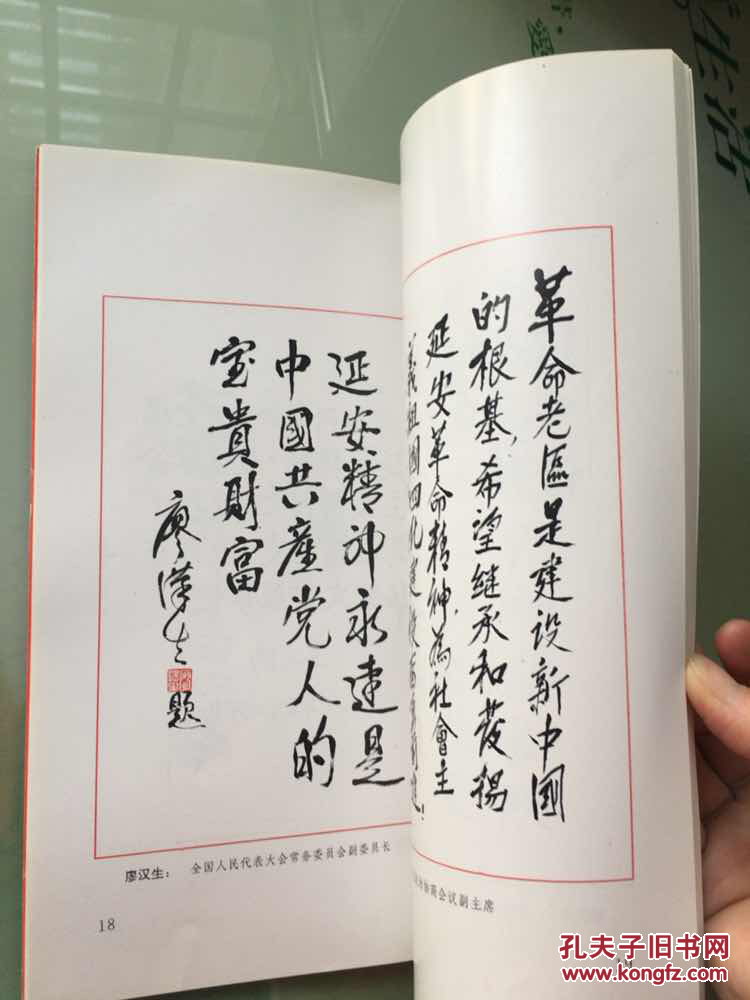 延安精神永远是
中國共產党人的
宝貴財富
廖漢生
題
廖汉生： 全国人民代表大会常务委员会副委员长
18
革命老區是建设新中國
的根基，希望继承和發揚
延安革命精神，為社會主
義祖國四化建設
商会议副主席
19
生活
孔夫子旧书网
www.kongfz.com